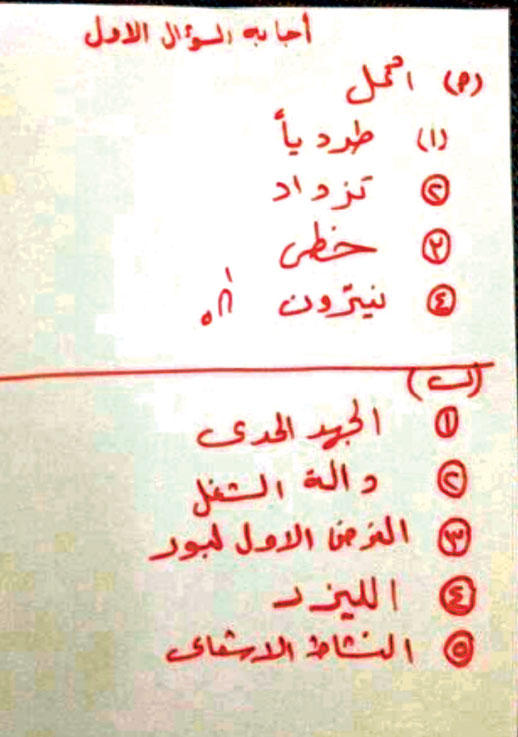 أجابه السؤال الاول
(م) اكمل
(١) طردياً
② تزداد
③ خطى
④ نيترون ¹₀n
(ب)
① الجهد الحدى
② دالة الشغل
③ الفرض الاول لبور
④ الليزر
⑤ النشاط الاشعاعى